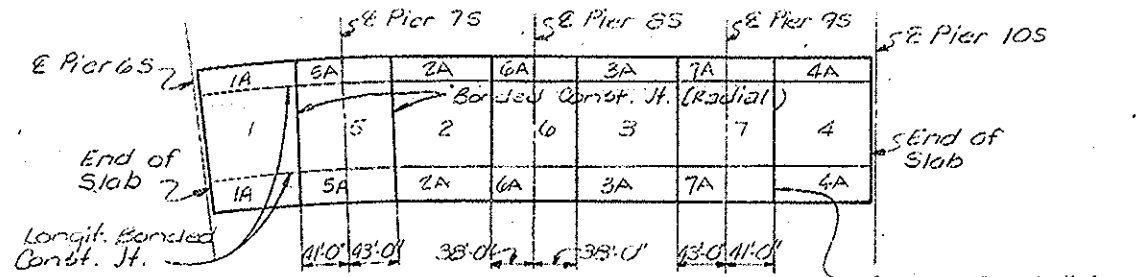 ℄ Pier 7S
℄ Pier 8S
℄ Pier 9S
℄ Pier 10S
℄ Pier 6S
1A 5A 2A 6A 3A 7A 4A
Bonded Const. Jt. (Radial)
1 5 2 6 3 7 4
End of
Slab
End of
Slab
1A 5A 2A 6A 3A 7A 4A
Longit. Bonded
Const. Jt.
41'-0" 43'-0" 38'-0" 38'-0" 43'-0" 41'-0"